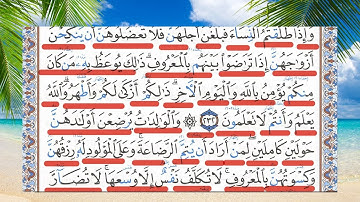 وَإِذَا طَلَّقْتُمُ النِّسَاءَ فَبَلَغْنَ أَجَلَهُنَّ فَلَا تَعْضُلُوهُنَّ أَن يَنكِحْنَ
أَزْوَاجَهُنَّ إِذَا تَرَاضَوْا بَيْنَهُم بِالْمَعْرُوفِ ذَٰلِكَ يُوعَظُ بِهِ مَن كَانَ
مِنكُمْ يُؤْمِنُ بِاللَّهِ وَالْيَوْمِ الْآخِرِ ذَٰلِكُمْ أَزْكَىٰ لَكُمْ وَأَطْهَرُ وَاللَّهُ
يَعْلَمُ وَأَنتُمْ لَا تَعْلَمُونَ ٢٣٢ ۞ وَالْوَالِدَاتُ يُرْضِعْنَ أَوْلَادَهُنَّ
حَوْلَيْنِ كَامِلَيْنِ لِمَنْ أَرَادَ أَن يُتِمَّ الرَّضَاعَةَ وَعَلَى الْمَوْلُودِ لَهُ رِزْقُهُنَّ
وَكِسْوَتُهُنَّ بِالْمَعْرُوفِ لَا تُكَلَّفُ نَفْسٌ إِلَّا وُسْعَهَا لَا تُضَارَّ